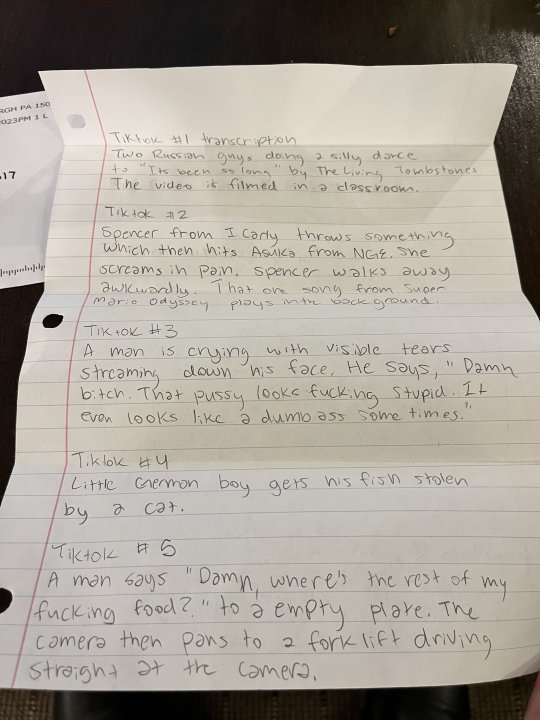 RGH PA 150
2023 PM 1 L
17
Tiktok #1 transcription
Two Russian guys doing a silly dance
to "Its been so long" by The Living Tombstones
The video is filmed in a classroom.
Tiktok #2
Spencer from I Carly throws something
which then hits Asuka from NGE. She
screams in pain. Spencer walks away
awkwardly. That one song from Super
Mario Odyssey plays in the background.
Tiktok #3
A man is crying with visible tears
streaming down his face. He says, "Damn
bitch. That pussy looks fucking stupid. It
even looks like a dumbass some times."
Tiktok #4
Little German boy gets his fish stolen
by a cat.
Tiktok #5
A man says "Damn, where's the rest of my
fucking food?" to a empty plate. The
camera then pans to a forklift driving
straight at the camera.